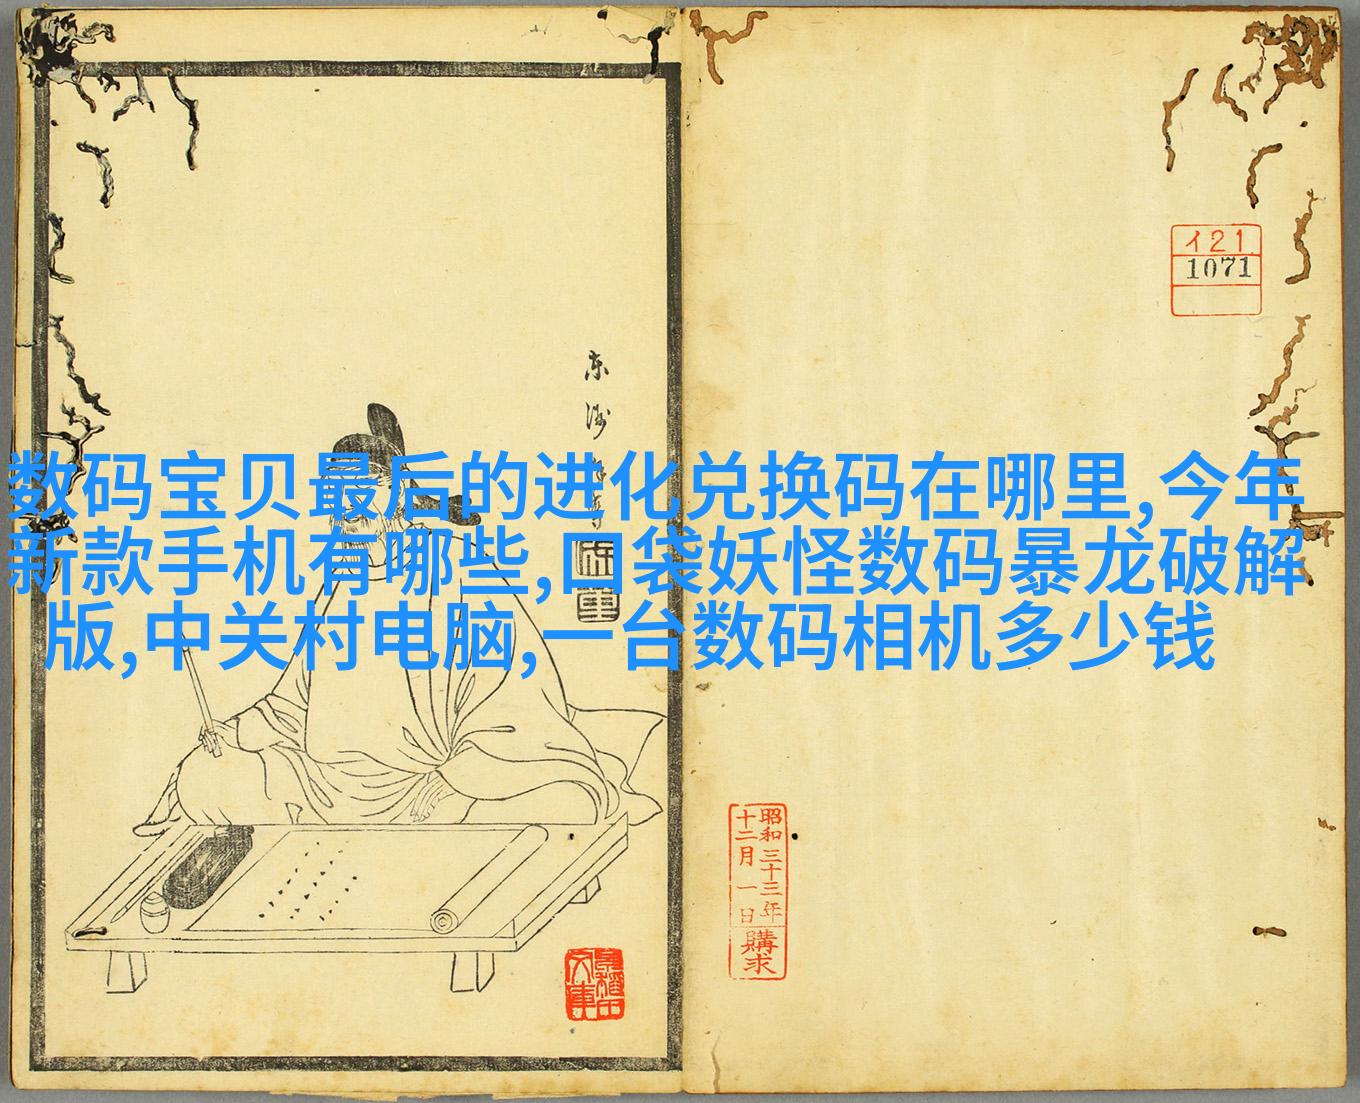 数码宝贝最后的进化兑换码在哪里,今年
新款手机有哪些,口袋妖怪数码暴龙破解
版,中关村电脑,一台数码相机多少钱
イ21
1071
昭和三十三年
十二月一日
購求